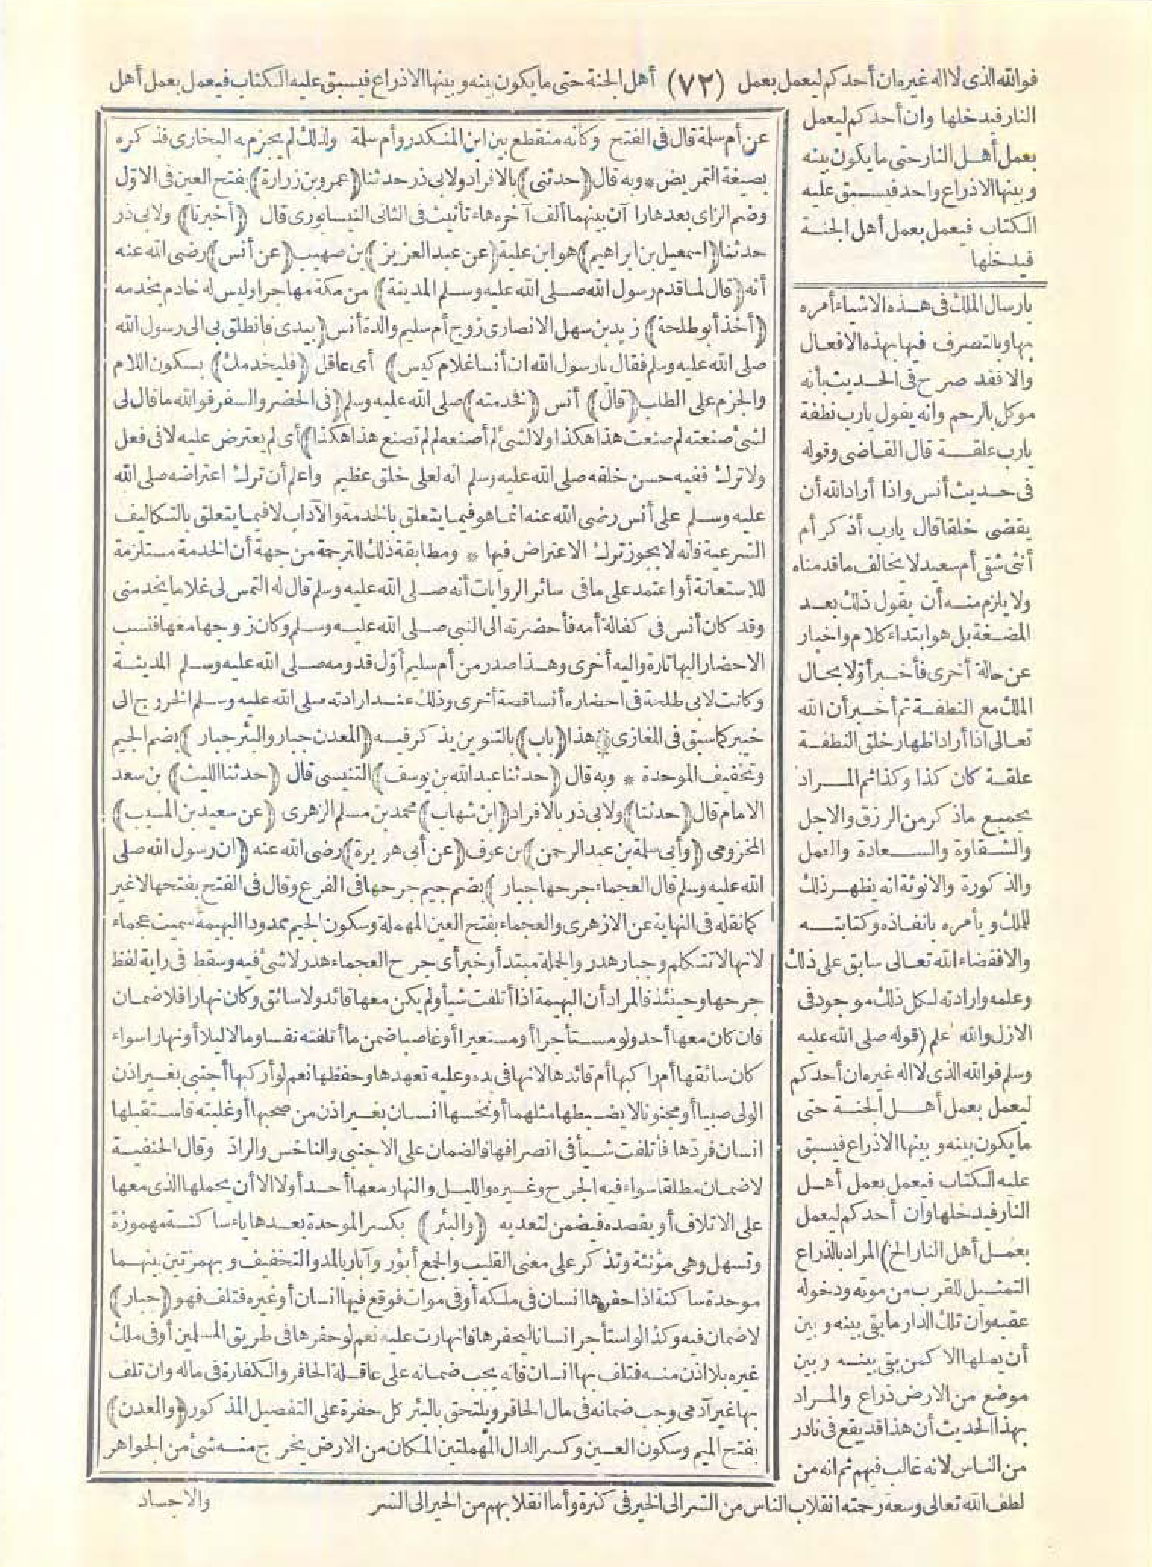 فوالله الذى لا اله غيره ان أحدكم ليعمل بعمل (٧٢) أهل الجنة حتى ما يكون بينه وبينها الا ذراع فيسبق عليه الكتاب فيعمل بعمل أهل
النار فيدخلها وان أحدكم ليعمل
بعمل أهل النار حتى ما يكون بينه
وبينها الا ذراع واحد فيسبق عليه
الكتاب فيعمل بعمل أهل الجنة
فيدخلها
بارسال الملك فى هذه الاشياء أمره
بها وبالتصرف فيها بهذه الافعال
والا فقد صرح فى الحديث بأنه
موكل بالرحم وانه يقول يا رب نطفة
يا رب علقة قال القاضى وقوله
فى حديث أنس واذا أراد الله أن
يقضى خلقا قال يا رب أذكر أم
أنثى شقى أم سعيد لا يخالف ما قدمناه
ولا يلزم منه أن يقول ذلك بعد
المضغة بل هو ابتداء كلام واخبار
عن حالة أخرى فأخبر أولا بحال
الملك مع النطفة ثم أخبر أن الله
تعالى اذا أراد اظهار خلق النطفة
علقة كان كذا وكذا ثم المراد
بجميع ما ذكر من الرزق والاجل
والشقاوة والسعادة والعمل
والذكورة والانوثة انه يظهر ذلك
للملك ويأمره بانفاذه وكتابته
والا فقضاء الله تعالى سابق على ذلك
وعلمه وارادته لكل ذلك موجود فى
الازل والله أعلم (قوله صلى الله عليه
وسلم فوالله الذى لا اله غيره ان أحدكم
ليعمل بعمل أهل الجنة حتى
ما يكون بينه وبينها الا ذراع فيسبق
عليه الكتاب فيعمل بعمل أهل
النار فيدخلها وان أحدكم ليعمل
بعمل أهل النار الخ) المراد بالذراع
التمثيل للقرب من موته ودخوله
عقبه وان تلك الدار ما بقى بينه وبين
أن يصلها الا كمن بقى بينه وبين
موضع من الارض ذراع والمراد
بهذا الحديث أن هذا قد يقع فى نادر
من الناس لانه غالب فيهم ثم انه من
لطف الله تعالى وسعة رحمته انقلاب الناس من الشر الى الخير فى كثرة وأما انقلابهم من الخير الى الشر
عن أم سلمة قال فى الفتح وكأنه منقطع بين ابن المنكدر وأم سلمة ولذلك لم يجزم به البخارى فذكره
بصيغة التمريض * وبه قال (حدثنى) بالافراد ولابى ذر حدثنا (عمرو بن زرارة) بفتح العين فى الاول
وضم الزاى بعدها را آن بينهما ألف آخره هاء تأنيث فى الثانى النيسابورى قال (أخبرنا) ولابى ذر
حدثنا (اسمعيل بن ابراهيم) هو ابن علية (عن عبد العزيز) بن صهيب (عن أنس) رضى الله عنه
أنه (قال لما قدم رسول الله صلى الله عليه وسلم المدينة) من مكة مهاجرا وليس له خادم يخدمه
(أخذ أبو طلحة) زيد بن سهل الانصارى زوج أم سليم والدة أنس (بيدى فانطلق بى الى رسول الله
صلى الله عليه وسلم فقال يا رسول الله ان أنسا غلام كيس) أى عاقل (فليخدمك) بسكون اللام
والجزم على الطلب (قال) أنس (فخدمته) صلى الله عليه وسلم (فى الحضر والسفر فوالله ما قال لى
لشئ صنعته لم صنعت هذا هكذا ولا لشئ لم أصنعه لم لم تصنع هذا هكذا) أى لم يعترض عليه لا فى فعل
ولا ترك ففيه حسن خلقه صلى الله عليه وسلم انه لعلى خلق عظيم واعلم أن ترك اعتراضه صلى الله
عليه وسلم على أنس رضى الله عنه انما هو فيما يتعلق بالخدمة والآداب لا فيما يتعلق بالتكاليف
الشرعية فانه لا يجوز ترك الاعتراض فيها * ومطابقة ذلك للترجمة من جهة أن الخدمة مستلزمة
للاستعانة أو اعتمد على ما فى سائر الروايات أنه صلى الله عليه وسلم قال له التمس لى غلاما يخدمنى
وقد كان أنس فى كفالة أمه فأحضرته الى النبى صلى الله عليه وسلم وكان زوجها معها فنسب
الاحضار اليها تارة واليه أخرى وهذا صدر من أم سليم أول قدومه صلى الله عليه وسلم المدينة
وكانت لابى طلحة فى احضاره أنسا قصة أخرى وذلك عند ارادته صلى الله عليه وسلم الخروج الى
خيبر كما سبق فى المغازى * هذا (باب) بالتنوين يذكر فيه (المعدن جبار والبئر جبار) بضم الجيم
وتخفيف الموحدة * وبه قال (حدثنا عبد الله بن يوسف) التنيسى قال (حدثنا الليث) بن سعد
الامام قال (حدثنا) ولابى ذر بالافراد (ابن شهاب) محمد بن مسلم الزهرى (عن سعيد بن المسيب)
المخزومى (وأبى سلمة بن عبد الرحمن) بن عوف (عن أبى هريرة) رضى الله عنه (ان رسول الله صلى
الله عليه وسلم قال العجماء جرحها جبار) بضم جيم جرحها فى الفرع وقال فى الفتح بفتحها لا غير
كما نقله فى النهاية عن الازهرى والعجماء بفتح العين المهملة وسكون الجيم ممدودا البهيمة سميت عجماء
لانها لا تتكلم وجبار هدر والجملة مبتدأ وخبر أى جرح العجماء هدر لا شئ فيه وسقط فى رواية لفظ
جرحها وحينئذ فالمراد أن البهيمة اذا أتلفت شيأ ولم يكن معها قائد ولا سائق وكان نهارا فلا ضمان
فان كان معها أحد ولو مستأجرا أو مستعيرا أو غاصبا ضمن ما أتلفته نفسا ومالا ليلا أو نهارا سواء
كان سائقها أم راكبها أم قائدها لانها فى يده وعليه تعهدها وحفظها نعم لو أركبها أجنبى بغير اذن
الولى صبيا أو مجنونا لا يضبطها مثلهما أو نخسها انسان بغير اذن من صحبها أو غلبته فاستقبلها
انسان فردها فأتلفت شيأ فى انصرافها فالضمان على الاجنبى والناخس والراد وقال الحنفية
لا ضمان مطلقا سواء فيه الجرح وغيره والليل والنهار معها أحد أو لا الا أن يحملها الذى معها
على الاتلاف أو يقصده فيضمن لتعديه (والبئر) بكسر الموحدة بعدها ياء ساكنة مهموزة
وتسهل وهى مؤنثة وتذكر على معنى القليب والجمع أبؤر وآبار بالمد والتخفيف وبهمزتين بينهما
موحدة ساكنة اذا حفرها انسان فى ملكه أو فى موات فوقع فيها انسان أو غيره فتلف فهو (جبار)
لا ضمان فيه وكذا لو استأجر انسانا ليحفرها فانهارت عليه نعم لو حفرها فى طريق المسلمين أو فى ملك
غيره بلا اذن منه فتلف بها انسان فانه يجب ضمانه على عاقلة الحافر والكفارة فى ماله وان تلف
بها غير آدمى وجب ضمانه فى مال الحافر ويلتحق بالبئر كل حفرة على التفصيل المذكور (والمعدن)
بفتح الميم وسكون العين وكسر الدال المهملتين المكان من الارض يخرج منه شئ من الجواهر
والاجساد